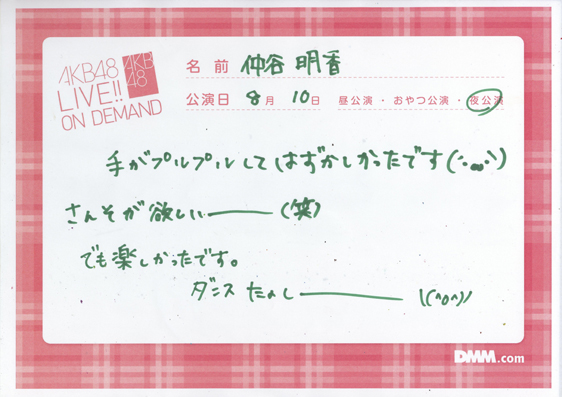 AKB48
LIVE!!
ON DEMAND
AKB
48
名前 仲谷 明香
公演日 8月 10日 昼公演・おやつ公演・夜公演
手がプルプルしてはずかしかったです(・ω・`)
さんそが欲しい———(笑)
でも楽しかったです。
ダンスたのし————\(^o^)/
DMM.com